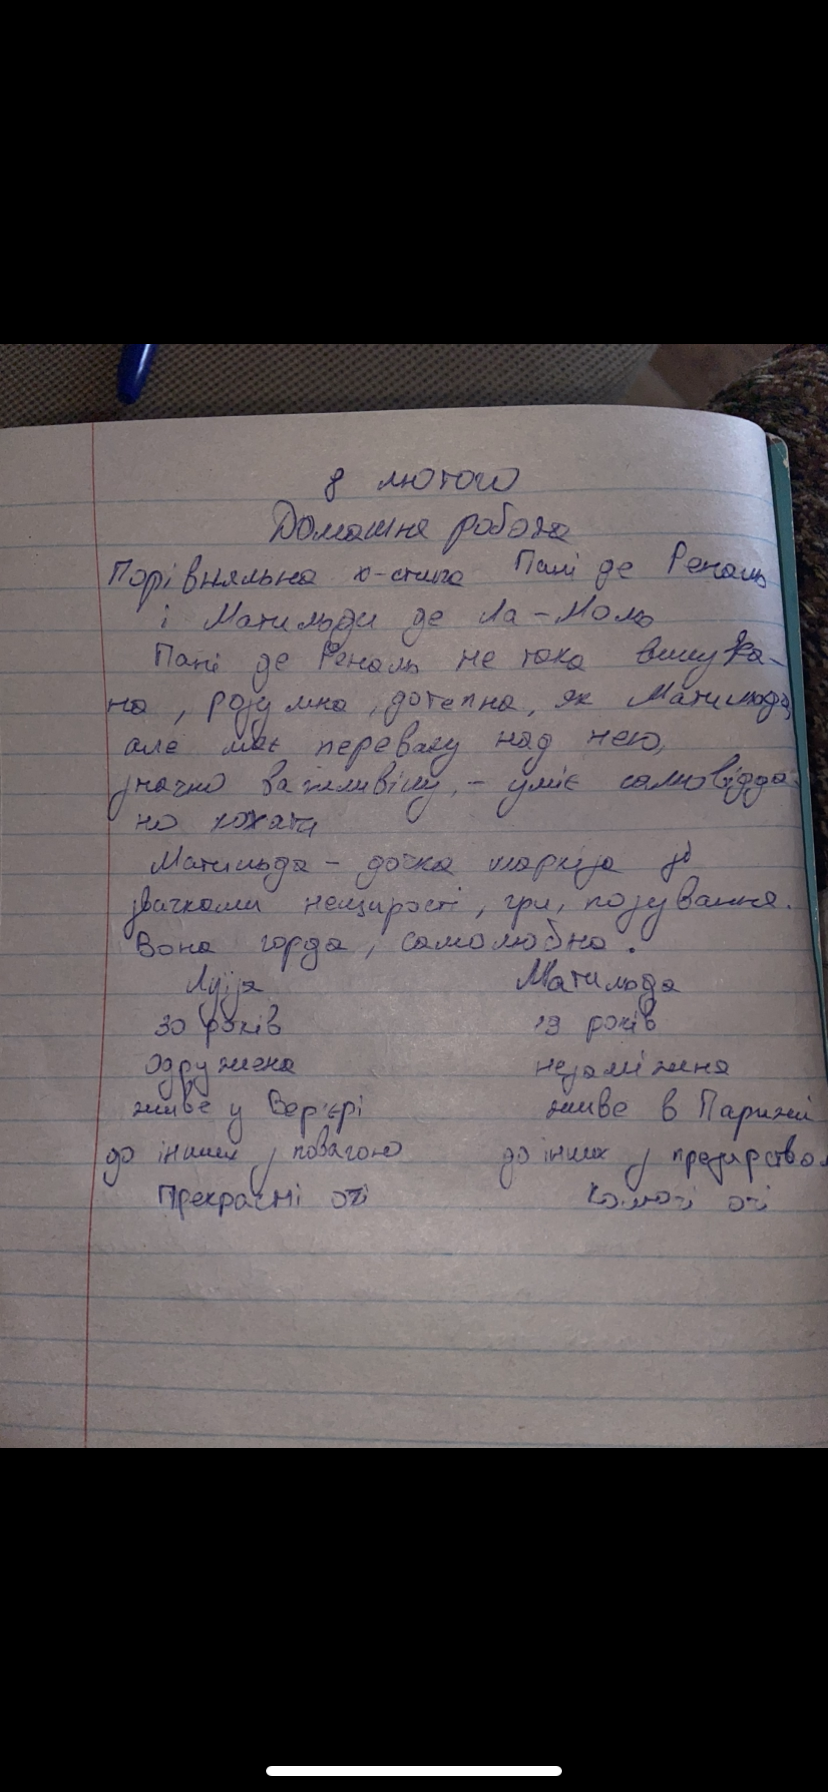 8 лютого
Домашня робота
Порівняльна х-стика Пані де Реналь
і Матильди де Ла-Моль
Пані де Реналь не така вишука-
на, розумна, дотепна, як Матильда,
але має перевагу над нею,
значно важливішу, - уміє самовідда-
но кохати
Матильда - дочка маркіза зі
звичками нещирості, гри, позування.
Вона горда, самолюбна.
Луїза Матильда
30 років 19 років
одружена незаміжня
живе у Вер'єрі живе в Парижі
до інших з повагою до інших з презирством
Прекрасні очі очі